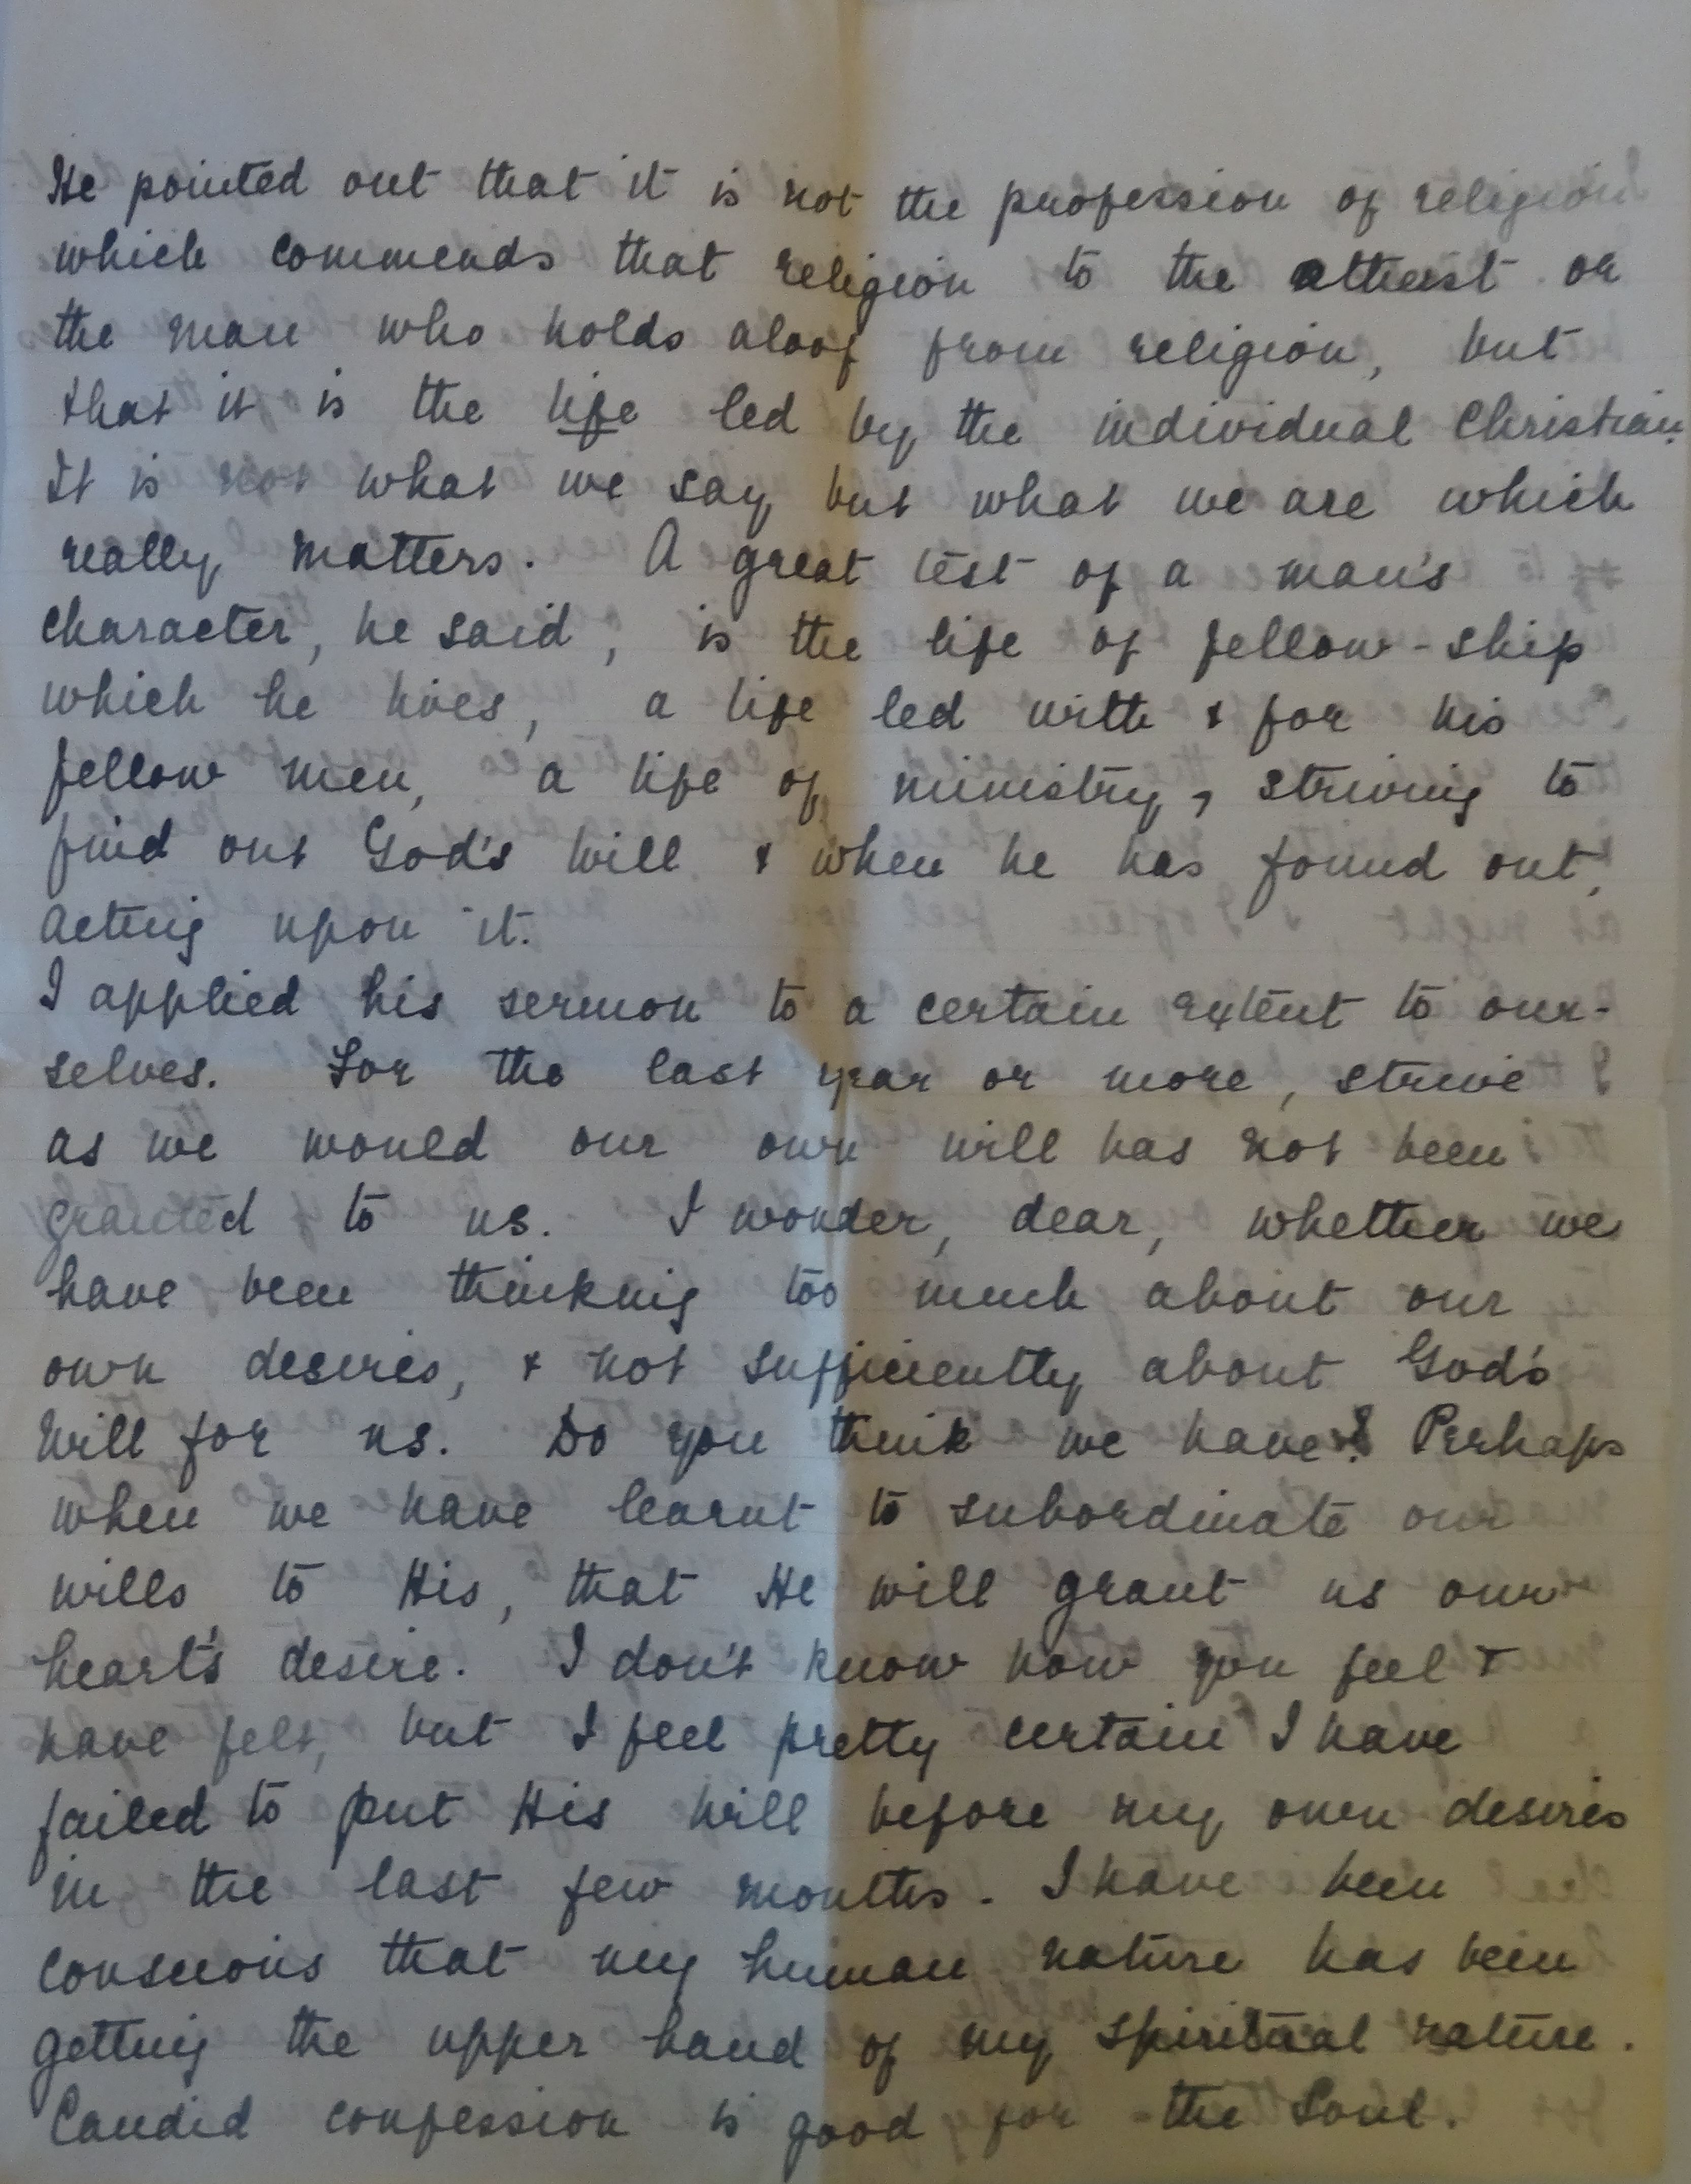 He pointed out that it is not the profession of religion
which commends that religion to the atheist or
the man who holds aloof from religion, but
that it is the life led by the individual Christian.
It is not what we say but what we are which
really matters. A great test of a man's
character, he said, is the life of fellow-ship
which he lives, a life led with & for his
fellow men, a life of ministry, striving to
find out God's will & when he has found out,
acting upon it.
I applied his sermon to a certain extent to our-
selves. For the last year or more, strive
as we would our own will has not been
granted to us. I wonder, dear, whether we
have been thinking too much about our
own desires, & not sufficiently about God's
will for us. Do you think we have? Perhaps
when we have learnt to subordinate our
wills to His, that He will grant us our
heart's desire. I don't know how you feel &
have felt, but I feel pretty certain I have
failed to put His will before my own desires
in the last few months. I have been
conscious that my human nature has been
getting the upper hand of my spiritual nature.
Candid confession is good for the soul.